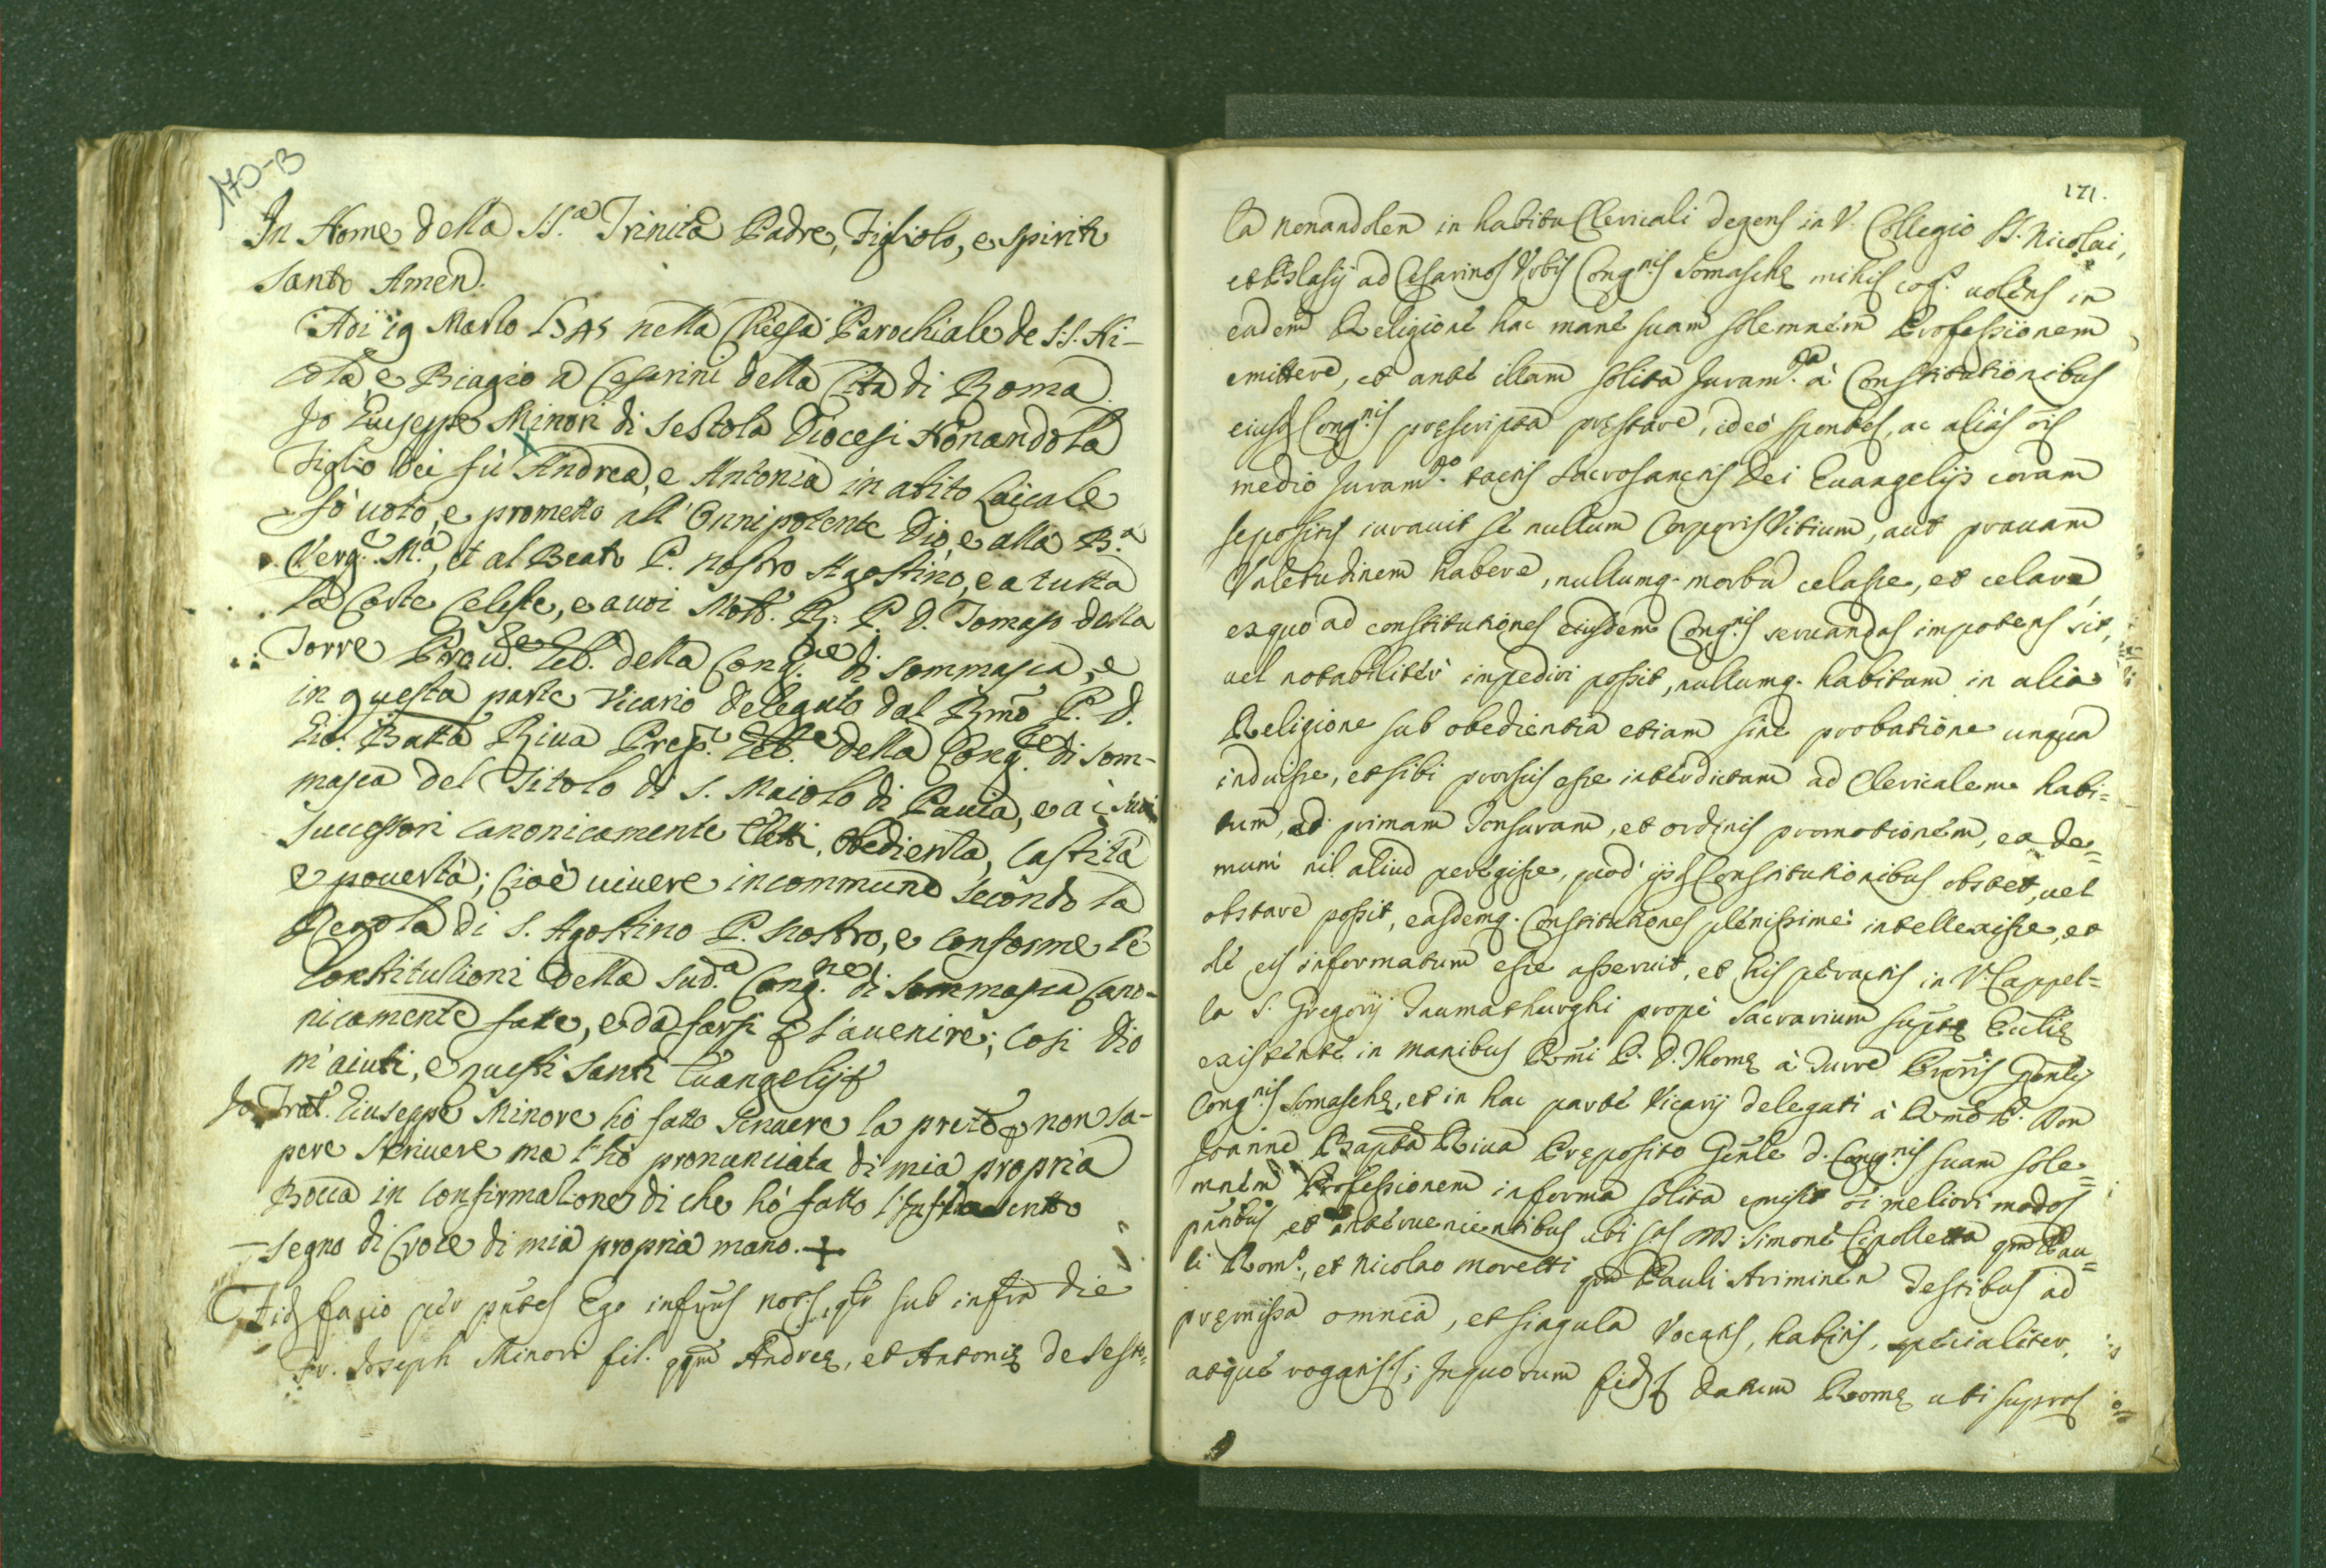 170-B
In Nome della SS.a Trinità Padre, Figliolo, e Spirito
Santo Amen.
Adi 19 Marzo 1745 nella Chiesa Parochiale de S:S: Ni-
cola, e Biagio a Cesarini della Città di Roma.
Io Giuseppe Minori di Sestola Diocesi Nonandola
Figlio del fù Andrea, e Antonia in abito Laicale
fò voto, e prometto all'Onnipotente Dio, e alla B.a
Verg.e M.a, et al Beato P. nostro Agostino, e a tutta
la Corte Celeste, e a voi Molt. R. P. D. Tomaso della
Torre Proc.re Gle. della Cong.ne di Sommasca, e
in questa parte Vicario delegato dal Rmo P. D.
Gio. Batta Riva Prep. Gle. della Cong.ne di Som-
masca del Titolo di S. Maiolo di Pavia, e a i suoi
Successori canonicamente eletti, obedienza, castità
e povertà; Cioè vivere in commune secondo la
Regola di S. Agostino P. nostro, e conforme le
Constitutioni della Sud.a Cong.ne di Sommasca Cano-
nicamente fatte, e da farsi p l'avenire; Cosi Dio
m'aiuti, e questi Santi Evangelij
Io Frat. Giuseppe Minore hò fatto Scrivere la pnte p non sa-
pere Scrivere ma l'hò pronunciata di mia propria
Bocca in confirmatione di che hò fatto l'infrascritto
segno di Croce di mia propria mano. +
Fid facio per pntes Ego infrus Nots, qtr sub infra die
Fr. Joseph Minori fil. qqm Andreę, et Antonię de Sesto-
171.
la Nonandolen in habitu Clericali degens in V. Collegio SS. Nicolai,
et Blasij ad Cesarinos Urbis Cong.nis Somaschę mihi cog. volens in
eadem Religione hac mane suam solemnem Professionem
emittere, et ante illam solita Juram.ta à Constitutionibus
eiusd Cong.nis pręscripta pręstare, ideò sponte, ac aliàs ois
medio Juram.to tactis Sacrosanctis Dei Evangelijs coram
sepositis iuravit se nullum Corporis Vitium, aut pravam
Valetudinem habere, nullumq. morbu celasse, et celare,
ex quo ad constitutiones eiusdem Cong.nis servandas impotens sit,
vel notabiliter impediri possit, nullumq. habitum in alia
Religione sub obedientia etiam sine probatione unqua
induisse, et sibi prorsus esse interdictum ad Clericalem habi=
tum, ad primam Tonsuram, et ordinis promotionem, ex de=
mum nil aliud peregisse, quod ijsd Constitutionibus obstet, vel
obstare possit, easdemq. Constitutiones plenissime intellexisse, et
de eis informatum esse asseruit, et his peractis in V. Cappel=
la S. Gregorij Taumathurghi propè Sacrarium suptę Ecclię
existente in manibus Rmi P. D. Thomę à Turre Procris Gnlis
Cong.nis Somaschę, et in hac parte Vicarij delegati à Rmo P. Don
Joanne Bapta Riva Pręposito Gnle d. Cong.nis suam sole=
mnem Professionem in forma solita emisit oi meliori modo
pntibus et intervenientibus ibi ... D. Simone Cipolletta qm Pau=
li Rom.o, et Nicolao Moretti qm Pauli Ariminen Testibus ad
pręmissa omnia, et singula Vocatis, habitis, specialiter,
atque rogatis; In quorum fid Datum Romę ubi supra